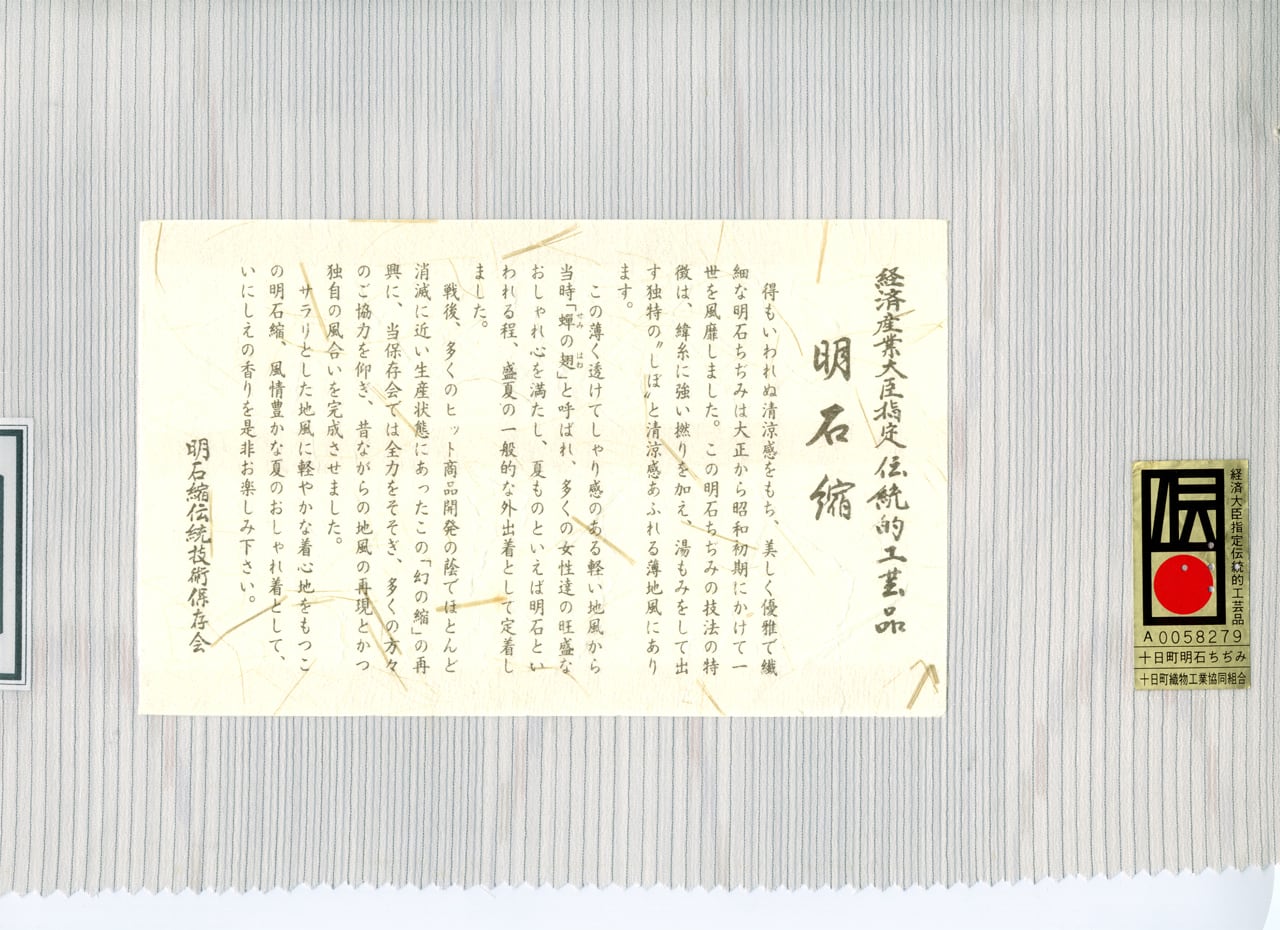 経済産業大臣指定伝統的工芸品
明石縮
得もいわれぬ清涼感をもち、美しく優雅で繊
細な明石ちぢみは大正から昭和初期にかけて一
世を風靡しました。この明石ちぢみの技法の特
徴は、緯糸に強い撚りを加え、湯もみをして出
す独特の〝しぼ〟と清涼感あふれる薄地風にあり
ます。
この薄く透けてしゃり感のある軽い地風から
当時「蟬の翅」と呼ばれ、多くの女性達の旺盛な
せみ はね
おしゃれ心を満たし、夏ものといえば明石とい
われる程、盛夏の一般的な外出着として定着し
ました。
戦後、多くのヒット商品開発の蔭でほとんど
消滅に近い生産状態にあったこの「幻の縮」の再
興に、当保存会では全力をそそぎ、多くの方々
のご協力を仰ぎ、昔ながらの地風の再現とかつ
独自の風合いを完成させました。
サラリとした地風に軽やかな着心地をもつこ
の明石縮、風情豊かな夏のおしゃれ着として、
いにしえの香りを是非お楽しみ下さい。
明石縮伝統技術保存会
経済大臣指定伝統的工芸品
伝
A0058279
十日町明石ちぢみ
十日町織物工業協同組合